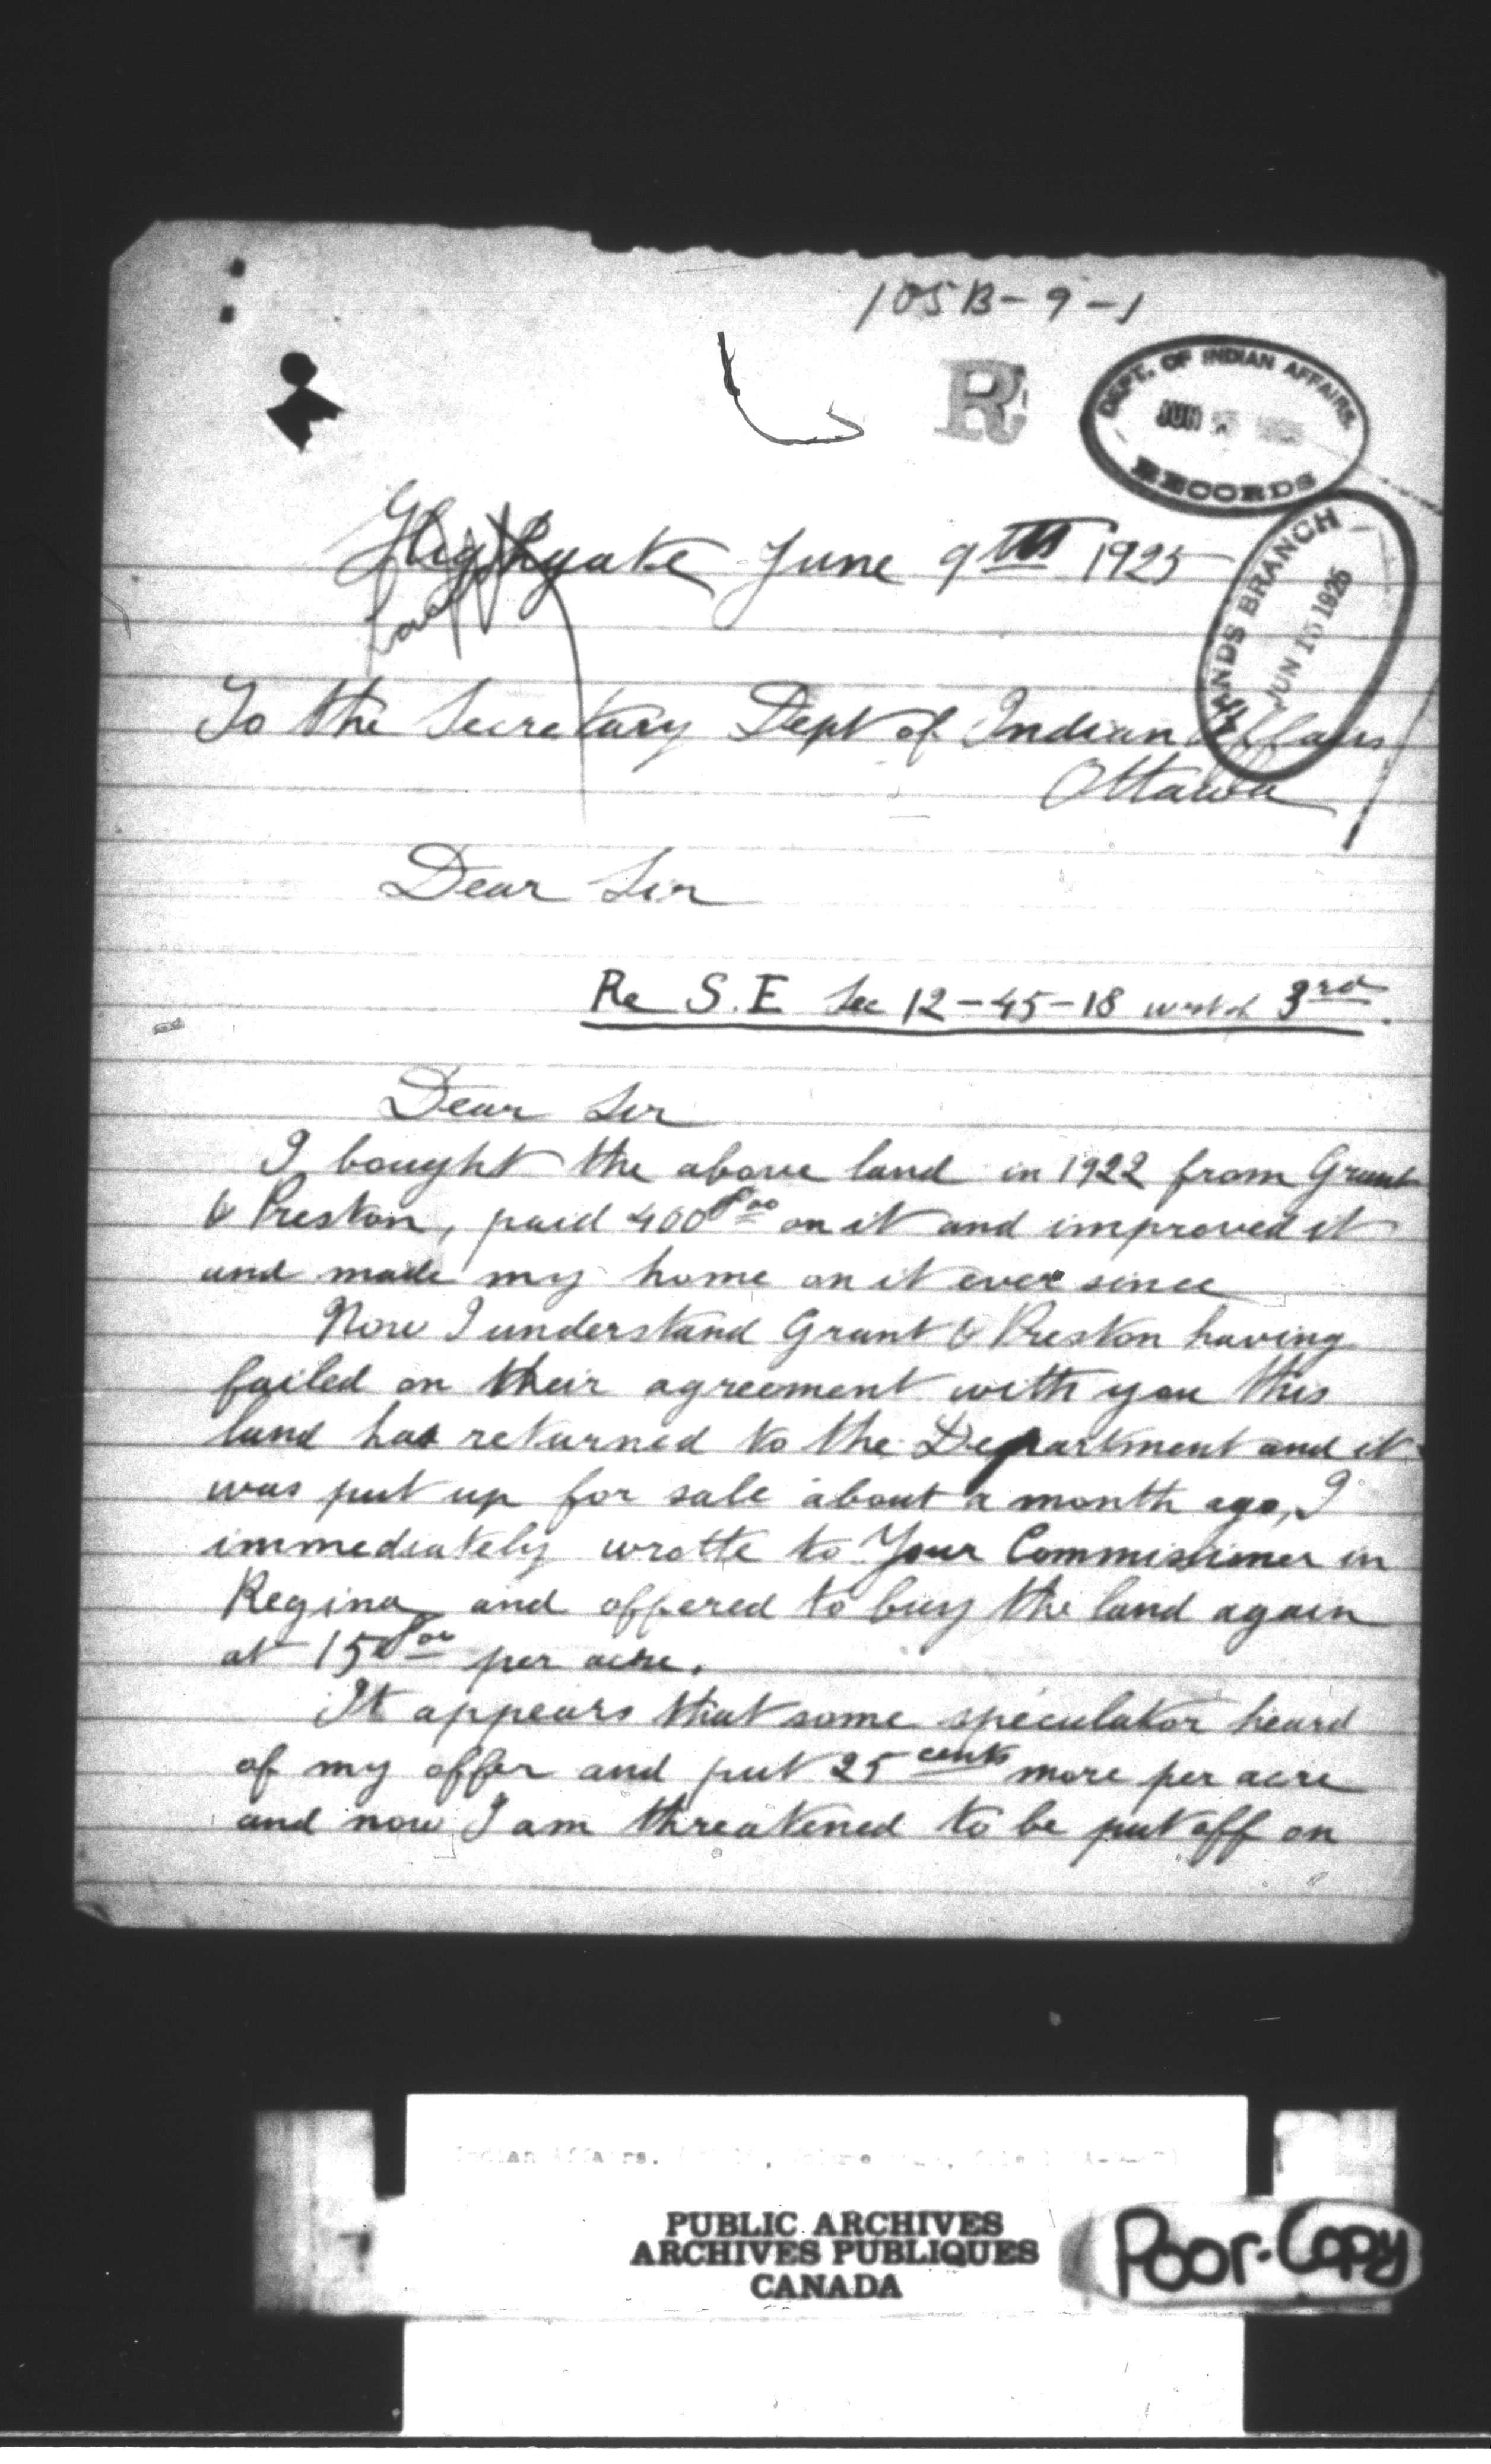 105B-9-1
R
DEPT. OF INDIAN AFFAIRS.
JUN 15
RECORDS
Highgate June 9th 1925
LANDS BRANCH
JUN 15 1925
To the Secretary Dept of Indian Affairs
Ottawa
Dear Sir
Re S.E Sec 12-45-18 west of 3rd.
Dear Sir
I bought the above land in 1922 from Grant
& Preston, paid 400 00 on it and improved it
and made my home on it ever since
Now I understand Grant & Preston having
failed on their agreement with you this
land has returned to the Department and it
was put up for sale about a month ago, I
immediately wrotte to Your Commissioner in
Regina and offered to buy the land again
at 15 00 per acre.
It appears that some speculator heard
of my offer and put 25 cents more per acre
and now I am threatened to be put off on
Indian Affairs.
PUBLIC ARCHIVES
ARCHIVES PUBLIQUES
CANADA
Poor-Copy